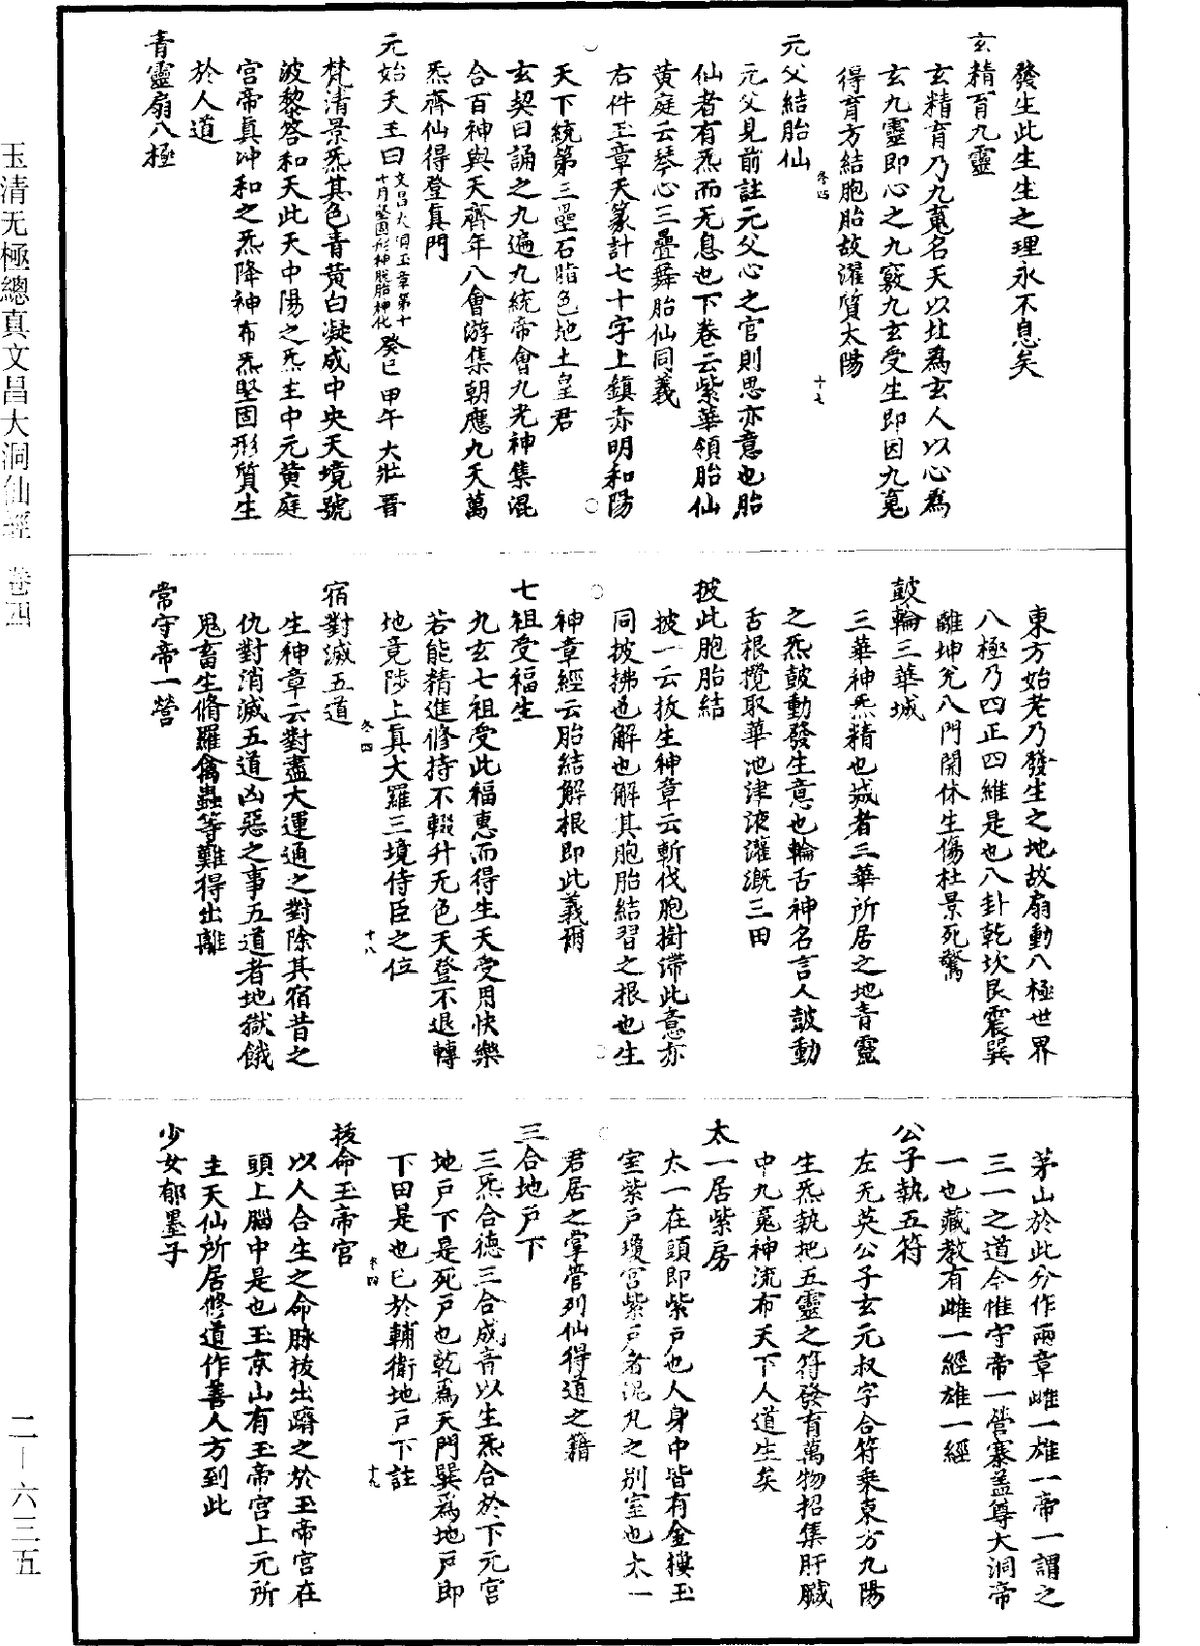 發生此生生之理永不息矣
玄精育九靈
玄精育乃九䰟名天以北為玄人以心為
玄九靈即心之九竅九玄受生即因九䰟
得育方結胞胎故濯質太陽
卷四 十七
元父結胎仙
元父見前註元父心之官則思亦意也胎
仙者有炁而无息也下卷云紫華領胎仙
黃庭云琴心三疊舞胎仙同義
右件玉章天篆計七十字上鎮赤明和陽
天下統第三壘石脂色地土皇君
玄契曰誦之九遍九統帝會九光神集混
合百神與天齊年八會游集朝應九天萬
炁齊仙得登真門
元始天王曰文昌大洞玉章第十十月堅固形神脫胎神化癸巳甲午大壯晉
梵清景炁其色青黃白凝成中央天境號
波黎答和天此天中陽之炁主中元黃庭
宮帝真沖和之炁降神布炁堅固形質生
於人道
青靈扇八極
東方始老乃發生之地故扇動八極世界
八極乃四正四維是也八卦乾坎艮震巽
離坤兌八門開休生傷杜景死驚
鼓輪三華城
三華神炁精也城者三華所居之地青靈
之炁鼓動發生意也輪舌神名言人鼓動
舌根攪取華池津液灌溉三田
披此胞胎結
披一云拔生神章云斬伐胞樹滯此意亦
同披拂也解也解其胞胎結習之根也生
神章經云胎結解根即此義爾
七祖受福生
九玄七祖受此福惠而得生天受用快樂
若能精進修持不輟升无色天登不退轉
地竟陟上真大羅三境侍臣之位
卷四 十八
宿對滅五道
生神章云對盡大運通之對除其宿昔之
仇對消滅五道凶惡之事五道者地獄餓
鬼畜生脩羅禽蟲等難得出離
常守帝一營
茅山於此分作兩章雌一雄一帝一謂之
三一之道今惟守帝一營寨蓋尊大洞帝
一也藏教有雌一經雄一經
公子執五符
左无英公子玄元叔字合符乘東方九陽
生炁執把五靈之符發育萬物招集肝臟
中九䰟神流布天下人道生矣
太一居紫房
太一在頭即紫戶也人身中皆有金樓玉
室紫戶瓊宮紫戶者泥丸之別室也太一
君居之掌管列仙得道之籍
三合地戶下
三炁合德三合成音以生炁合於下元宮
地戶下是死戶也乾為天門巽為地戶即
下田是也已於輔衛地戶下註
卷四 十九
拔命玉帝宮
以人合生之命脉拔出躋之於玉帝宮在
頭上腦中是也玉京山有玉帝宮上元所
主天仙所居修道作善人方到此
少女郁墨子
玉清无極總真文昌大洞仙經 卷四
二—六三五